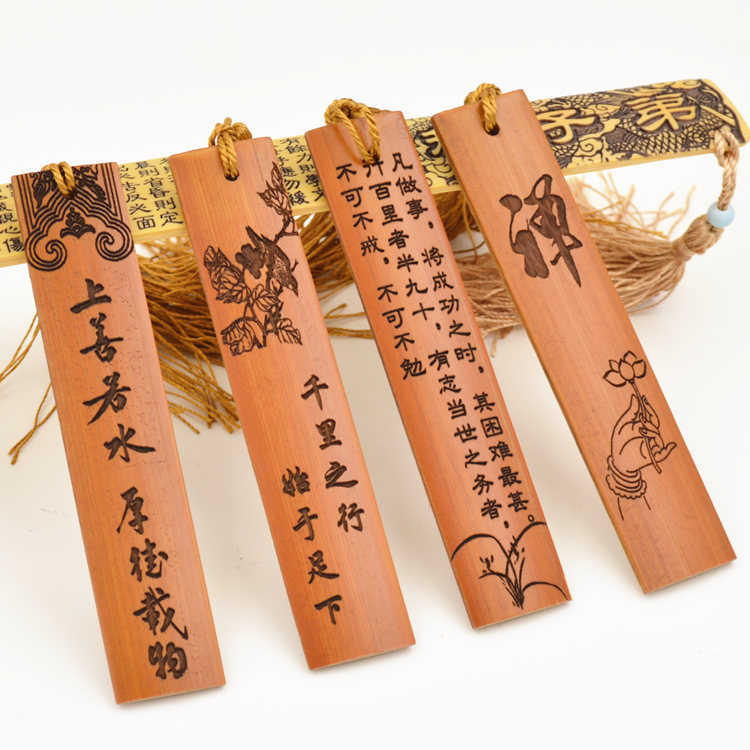 上善若水
厚德載物
千里之行
始于足下
凡做事,将成功之时,其困难最甚。
行百里者半九十,有志当世之务者,
不可不戒,不可不勉
禅
弟子
昏則定
反必面